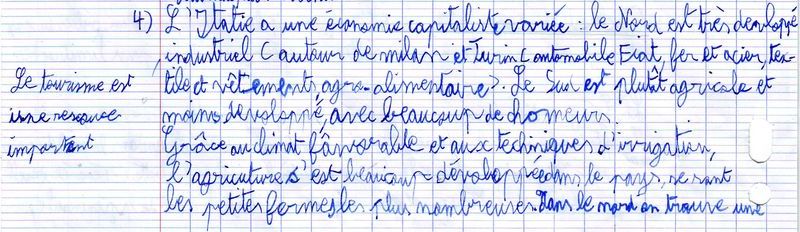 4) L'Italie a une économie capitaliste variée : le Nord est très developpé
industriel (autour de milan et Turin (automobile Fiat, fer et acier, tex-
tile et vêtements, agro-alimentaire). Le Sud est plutôt agricole et
moins developpé, avec beaucoup de chomeurs.
Grâce au climat fâvorable et aux techniques d'irrigation,
l'agriculture s'est beaucoup développée dans le pays, ce sont
les petites fermes les plus nombreuses. Dans le nord on trouve une
Le tourisme est
une resource
important